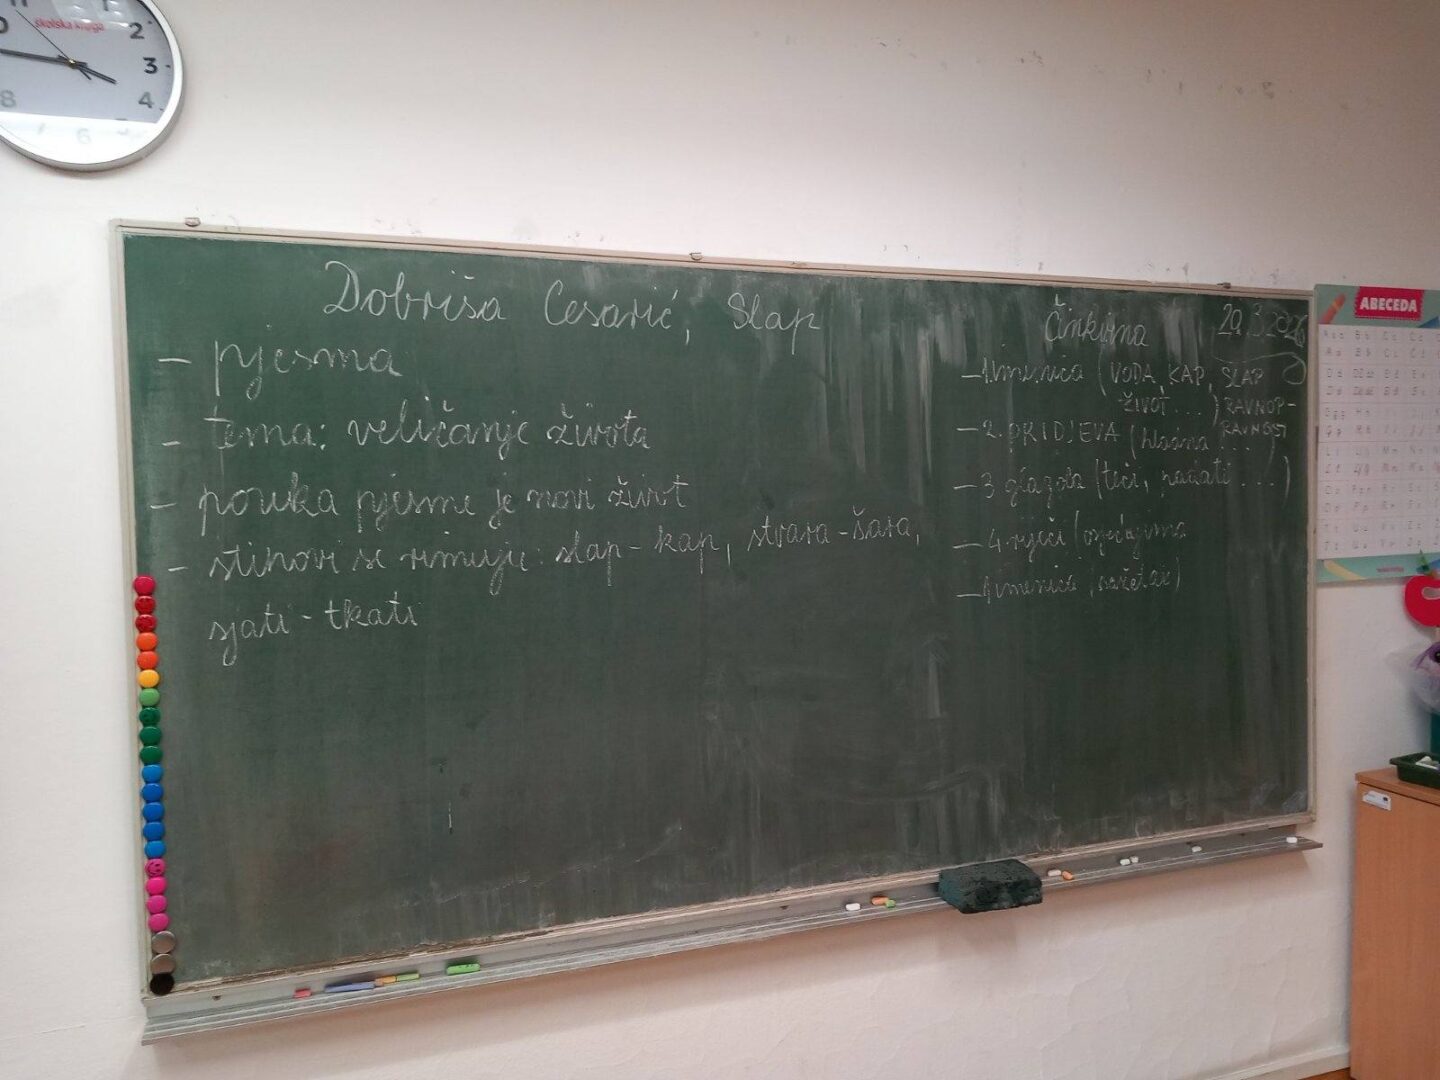 školska knjiga
2
3
4
6
8
Dobriša Cesarić, Slap
- pjesma
- tema: veličanje života
- pouka pjesme je novi život
- stihovi se rimuju: slap - kap, stvara - šara,
sjati - tkati
29.3.2026
- 1 imenica (VODA, KAP, SLAP
ŽIVOT ... ) RAVNOP-
RAVNOST
- 2. PRIDJEVA (hladna ... )
- 3 glagola (teći, padati ... )
- 4. riječi (osjećajima
- 1 imenica, sažetak)
ABECEDA